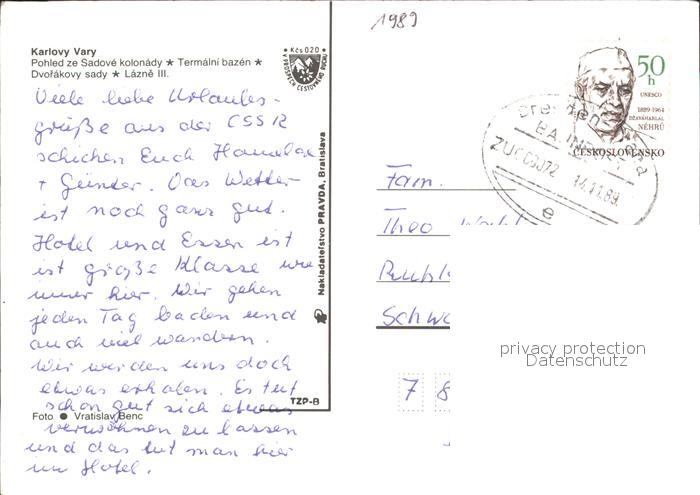 1989
Karlovy Vary
Pohled ze Sadové kolonády ★ Termální bazén ★
Dvořákovy sady ★ Lázně III.
Kčs 0,20
V PROSPĚCH CESTOVNÍHO RUCHU
Viele liebe Urlaubs-
grüße aus der CSSR
schicken Euch Hannelore
+ Günter. Das Wetter
ist noch ganz gut.
Hotel und Essen ist
ist große Klasse wie
immer hier. Wir gehen
jeden Tag baden und
auch viel wandern.
Wir werden uns doch
etwas erholen. Es tut
schon gut sich etwas
verwöhnen zu lassen
und das tut man hier
im Hotel.
Foto ● Vratislav Benc
Nakladateľstvo PRAVDA, Bratislava
TZP-B
50
h
UNESCO
1889-1964
DŽAVÁHARLÁL
NÉHRÚ
ČESKOSLOVENSKO
ZUG 00372
14.11.89
e
Fam.
Theo
Schw
7 8
privacy protection
Datenschutz